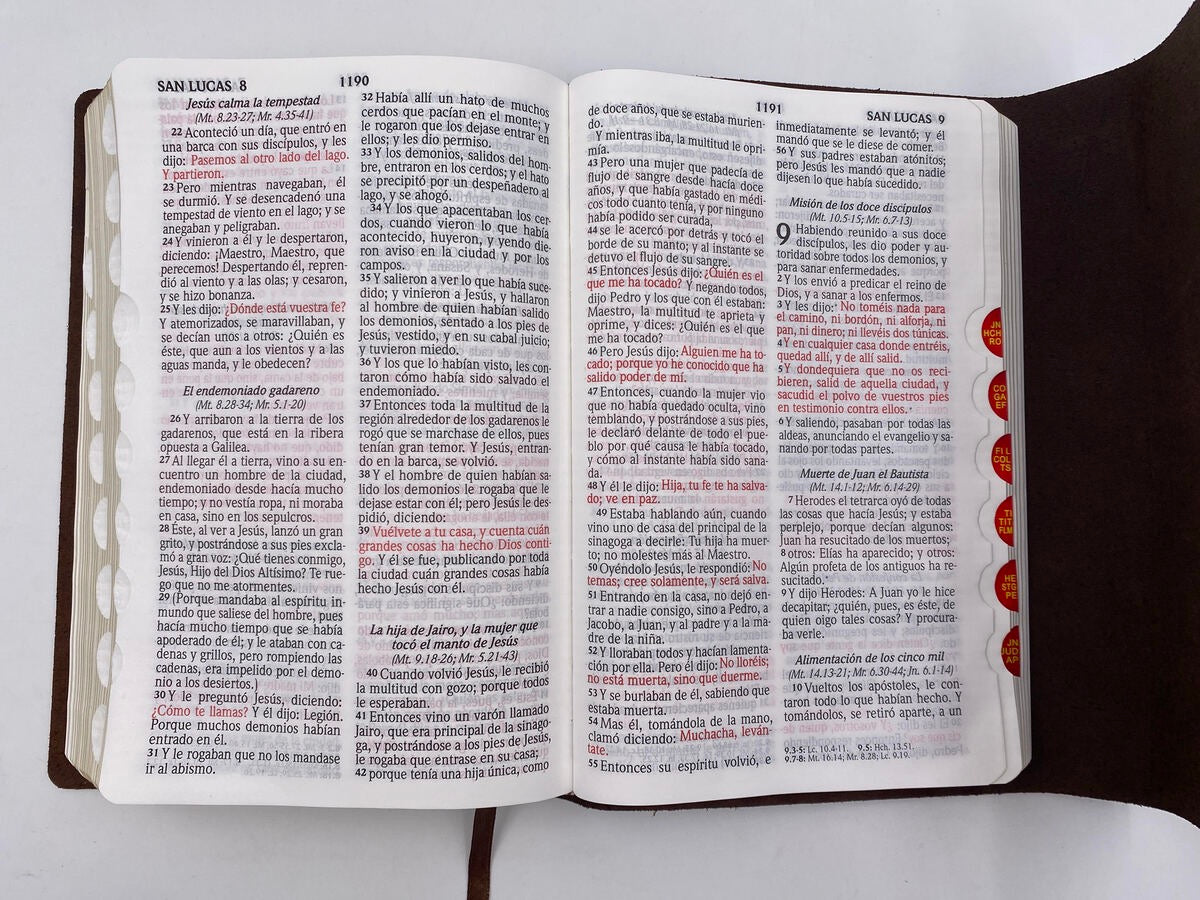 SAN LUCAS 8
1190
Jesús calma la tempestad
(Mt. 8.23-27; Mr. 4.35-41)
22 Aconteció un día, que entró en
una barca con sus discípulos, y les
dijo: Pasemos al otro lado del lago.
Y partieron.
23 Pero mientras navegaban, él
se durmió. Y se desencadenó una
tempestad de viento en el lago; y se
anegaban y peligraban.
24 Y vinieron a él y le despertaron,
diciendo: ¡Maestro, Maestro, que
perecemos! Despertando él, repren-
dió al viento y a las olas; y cesaron,
y se hizo bonanza.
25 Y les dijo: ¿Dónde está vuestra fe?
Y atemorizados, se maravillaban, y
se decían unos a otros: ¿Quién es
éste, que aun a los vientos y a las
aguas manda, y le obedecen?
El endemoniado gadareno
(Mt. 8.28-34; Mr. 5.1-20)
26 Y arribaron a la tierra de los
gadarenos, que está en la ribera
opuesta a Galilea.
27 Al llegar él a tierra, vino a su en-
cuentro un hombre de la ciudad,
endemoniado desde hacía mucho
tiempo; y no vestía ropa, ni moraba
en casa, sino en los sepulcros.
28 Éste, al ver a Jesús, lanzó un gran
grito, y postrándose a sus pies excla-
mó a gran voz: ¿Qué tienes conmigo,
Jesús, Hijo del Dios Altísimo? Te rue-
go que no me atormentes.
29 (Porque mandaba al espíritu in-
mundo que saliese del hombre, pues
hacía mucho tiempo que se había
apoderado de él; y le ataban con ca-
denas y grillos, pero rompiendo las
cadenas, era impelido por el demo-
nio a los desiertos.)
30 Y le preguntó Jesús, diciendo:
¿Cómo te llamas? Y él dijo: Legión.
Porque muchos demonios habían
entrado en él.
31 Y le rogaban que no los mandase
ir al abismo.
32 Había allí un hato de muchos
cerdos que pacían en el monte; y
le rogaron que los dejase entrar en
ellos; y les dio permiso.
33 Y los demonios, salidos del hom-
bre, entraron en los cerdos; y el hato
se precipitó por un despeñadero al
lago, y se ahogó.
34 Y los que apacentaban los cer-
dos, cuando vieron lo que había
acontecido, huyeron, y yendo die-
ron aviso en la ciudad y por los
campos.
35 Y salieron a ver lo que había suce-
dido; y vinieron a Jesús, y hallaron
al hombre de quien habían salido
los demonios, sentado a los pies de
Jesús, vestido, y en su cabal juicio;
y tuvieron miedo.
36 Y los que lo habían visto, les con-
taron cómo había sido salvado el
endemoniado.
37 Entonces toda la multitud de la
región alrededor de los gadarenos le
rogó que se marchase de ellos, pues
tenían gran temor. Y Jesús, entran-
do en la barca, se volvió.
38 Y el hombre de quien habían sa-
lido los demonios le rogaba que le
dejase estar con él; pero Jesús le des-
pidió, diciendo:
39 Vuélvete a tu casa, y cuenta cuán
grandes cosas ha hecho Dios conti-
go. Y él se fue, publicando por toda
la ciudad cuán grandes cosas había
hecho Jesús con él.
La hija de Jairo, y la mujer que
tocó el manto de Jesús
(Mt. 9.18-26; Mr. 5.21-43)
40 Cuando volvió Jesús, le recibió
la multitud con gozo; porque todos
le esperaban.
41 Entonces vino un varón llamado
Jairo, que era principal de la sinago-
ga, y postrándose a los pies de Jesús,
le rogaba que entrase en su casa;
42 porque tenía una hija única, como
1191
SAN LUCAS 9
de doce años, que se estaba murien-
do.
Y mientras iba, la multitud le opri-
mía.
43 Pero una mujer que padecía de
flujo de sangre desde hacía doce
años, y que había gastado en médi-
cos todo cuanto tenía, y por ninguno
había podido ser curada,
44 se le acercó por detrás y tocó el
borde de su manto; y al instante se
detuvo el flujo de su sangre.
45 Entonces Jesús dijo: ¿Quién es el
que me ha tocado? Y negando todos,
dijo Pedro y los que con él estaban:
Maestro, la multitud te aprieta y
oprime, y dices: ¿Quién es el que
me ha tocado?
46 Pero Jesús dijo: Alguien me ha to-
cado; porque yo he conocido que ha
salido poder de mí.
47 Entonces, cuando la mujer vio
que no había quedado oculta, vino
temblando, y postrándose a sus pies,
le declaró delante de todo el pue-
blo por qué causa le había tocado,
y cómo al instante había sido sana-
da.
48 Y él le dijo: Hija, tu fe te ha salva-
do; ve en paz.
49 Estaba hablando aún, cuando
vino uno de casa del principal de la
sinagoga a decirle: Tu hija ha muer-
to; no molestes más al Maestro.
50 Oyéndolo Jesús, le respondió: No
temas; cree solamente, y será salva.
51 Entrando en la casa, no dejó en-
trar a nadie consigo, sino a Pedro, a
Jacobo, a Juan, y al padre y a la ma-
dre de la niña.
52 Y lloraban todos y hacían lamenta-
ción por ella. Pero él dijo: No lloréis;
no está muerta, sino que duerme.
53 Y se burlaban de él, sabiendo que
estaba muerta.
54 Mas él, tomándola de la mano,
clamó diciendo: Muchacha, leván-
tate.
55 Entonces su espíritu volvió, e
inmediatamente se levantó; y él
mandó que se le diese de comer.
56 Y sus padres estaban atónitos;
pero Jesús les mandó que a nadie
dijesen lo que había sucedido.
Misión de los doce discípulos
(Mt. 10.5-15; Mr. 6.7-13)
9 Habiendo reunido a sus doce
discípulos, les dio poder y au-
toridad sobre todos los demonios, y
para sanar enfermedades.
2 Y los envió a predicar el reino de
Dios, y a sanar a los enfermos.
3 Y les dijo: No toméis nada para
el camino, ni bordón, ni alforja, ni
pan, ni dinero; ni llevéis dos túnicas.
4 Y en cualquier casa donde entréis,
quedad allí, y de allí salid.
5 Y dondequiera que no os reci-
bieren, salid de aquella ciudad, y
sacudid el polvo de vuestros pies
en testimonio contra ellos.
6 Y saliendo, pasaban por todas las
aldeas, anunciando el evangelio y sa-
nando por todas partes.
Muerte de Juan el Bautista
(Mt. 14.1-12; Mr. 6.14-29)
7 Herodes el tetrarca oyó de todas
las cosas que hacía Jesús; y estaba
perplejo, porque decían algunos:
Juan ha resucitado de los muertos;
8 otros: Elías ha aparecido; y otros:
Algún profeta de los antiguos ha re-
sucitado.
9 Y dijo Herodes: A Juan yo le hice
decapitar; ¿quién, pues, es éste, de
quien oigo tales cosas? Y procura-
ba verle.
Alimentación de los cinco mil
(Mt. 14.13-21; Mr. 6.30-44; Jn. 6.1-14)
10 Vueltos los apóstoles, le con-
taron todo lo que habían hecho. Y
tomándolos, se retiró aparte, a un
9.3-5: Lc. 10.4-11. 9.5: Hch. 13.51.
9.7-8: Mt. 16.14; Mr. 8.28; Lc. 9.19.
JN
HCH
RO
CO
GA
EF
FIL
COL
TS
TI
TIT
FLM
HE
STG
PE
JN
JUD
AP